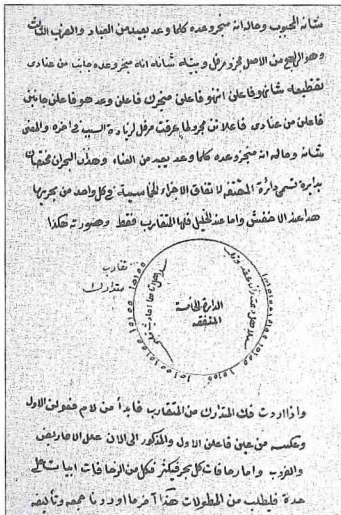 شانه المحبوب وحاله انه منجز وعده كلما وعد بعيد من العباد والضرب الثالث
وهو الرابع من الاصل مجزو مرفل وبيته شانه انه منجز وعده جانبا من عنادى
تقطيعه شانهو فاعلن انهو فاعلن منجزن فاعلن وعدهو فاعلن جانبن
فاعلن من عنادى فاعلاتن مجزو لما عرفت مرفل لزيادة السبب فى اخره والمعنى
شانه وحاله انه منجز وعده كلما وعد بعيد من العناء وهذان البحران مختصان
بدايرة تسمى دائرة المتفقة لاتفاق الاجزاء الخماسية وكل واحد من بحريها
هذا عند الاخفش واما عند الخليل فلها المتقارب فقط وصورته هكذا
تقارب
متدارك
الدايرة الخامسة
المتفقه
واذا اردت فك المتدارك من المتقارب فابدأ من لام فعولن الاول
وعكسه من عين فاعلن الاول والمذكور الى الان علل الاعاريض
والضروب واما زحافات كل بحر فيكثر فكل من الزحافات ابيات على
حدة فليطلب من المطولات هذا آخر ما اوردنا جمعه وتأليفه